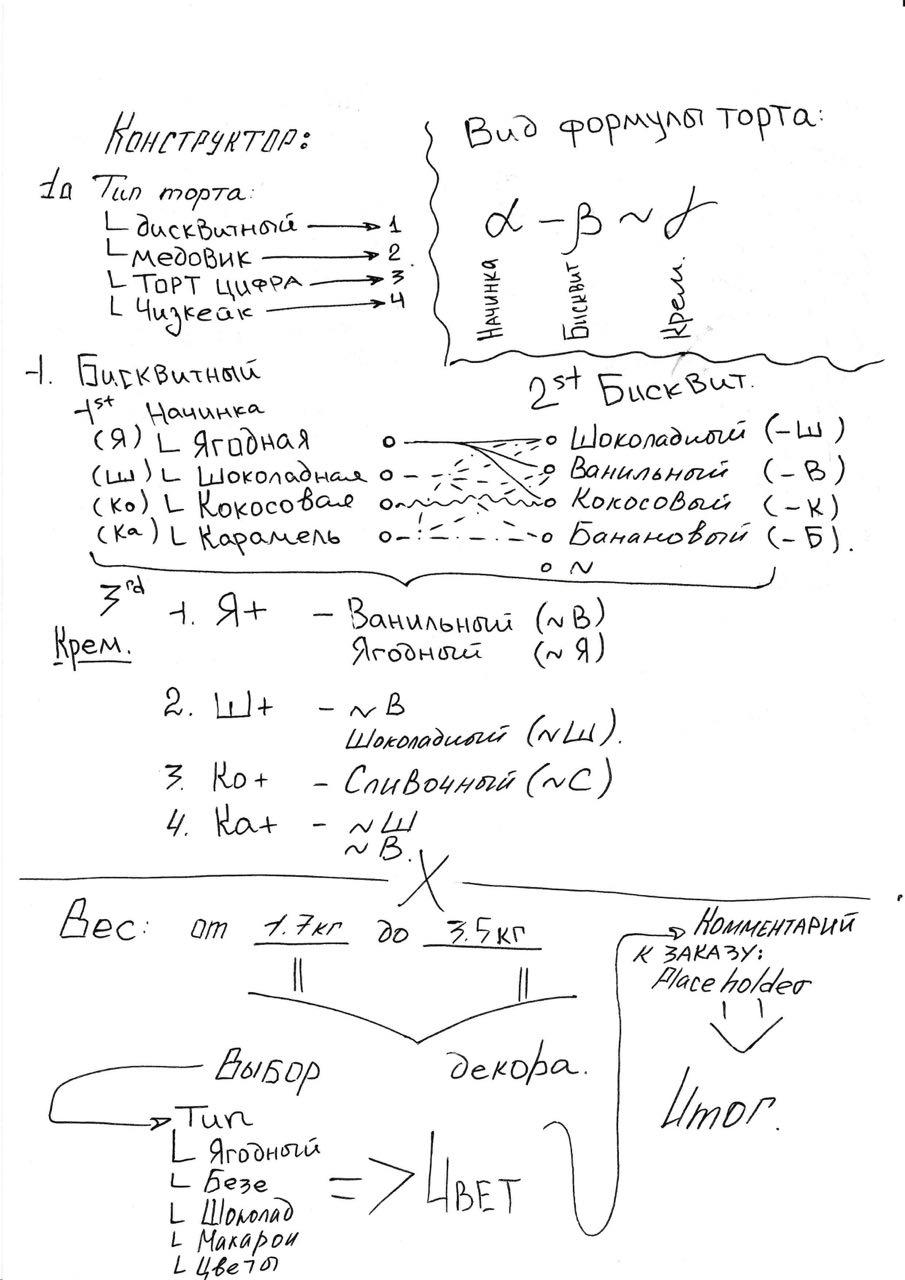 Конструктор:
1а Тип торта:
└ дисквитный → 1
└ медовик → 2
└ Торт цифра → 3
└ Чизкейк → 4
Вид формулы торта:
α – β ~ γ
Начинка
Бисквит
Крем.
1. Бисквитный
1st Начинка
(Я) └ Ягодная
(Ш) └ Шоколадная
(Ко) └ Кокосовая
(Ка) └ Карамель
2st Бисквит.
Шоколадный (–Ш)
Ванильный (–В)
Кокосовый (–К)
Банановый (–Б).
~
3rd
Крем.
1. Я+ – Ванильный (~В)
Ягодный (~Я)
2. Ш+ – ~В
Шоколадный (~Ш).
3. Ко+ – Сливочный (~С)
4. Ка+ – ~Ш
~В.
Вес: от 1.7кг до 3.5кг
Выбор декора.
Тип
└ Ягодный
└ Безе
└ Шоколад
└ Макарон
└ Цветы
=> Цвет
Комментарий
к заказу:
Placeholder
Итог.